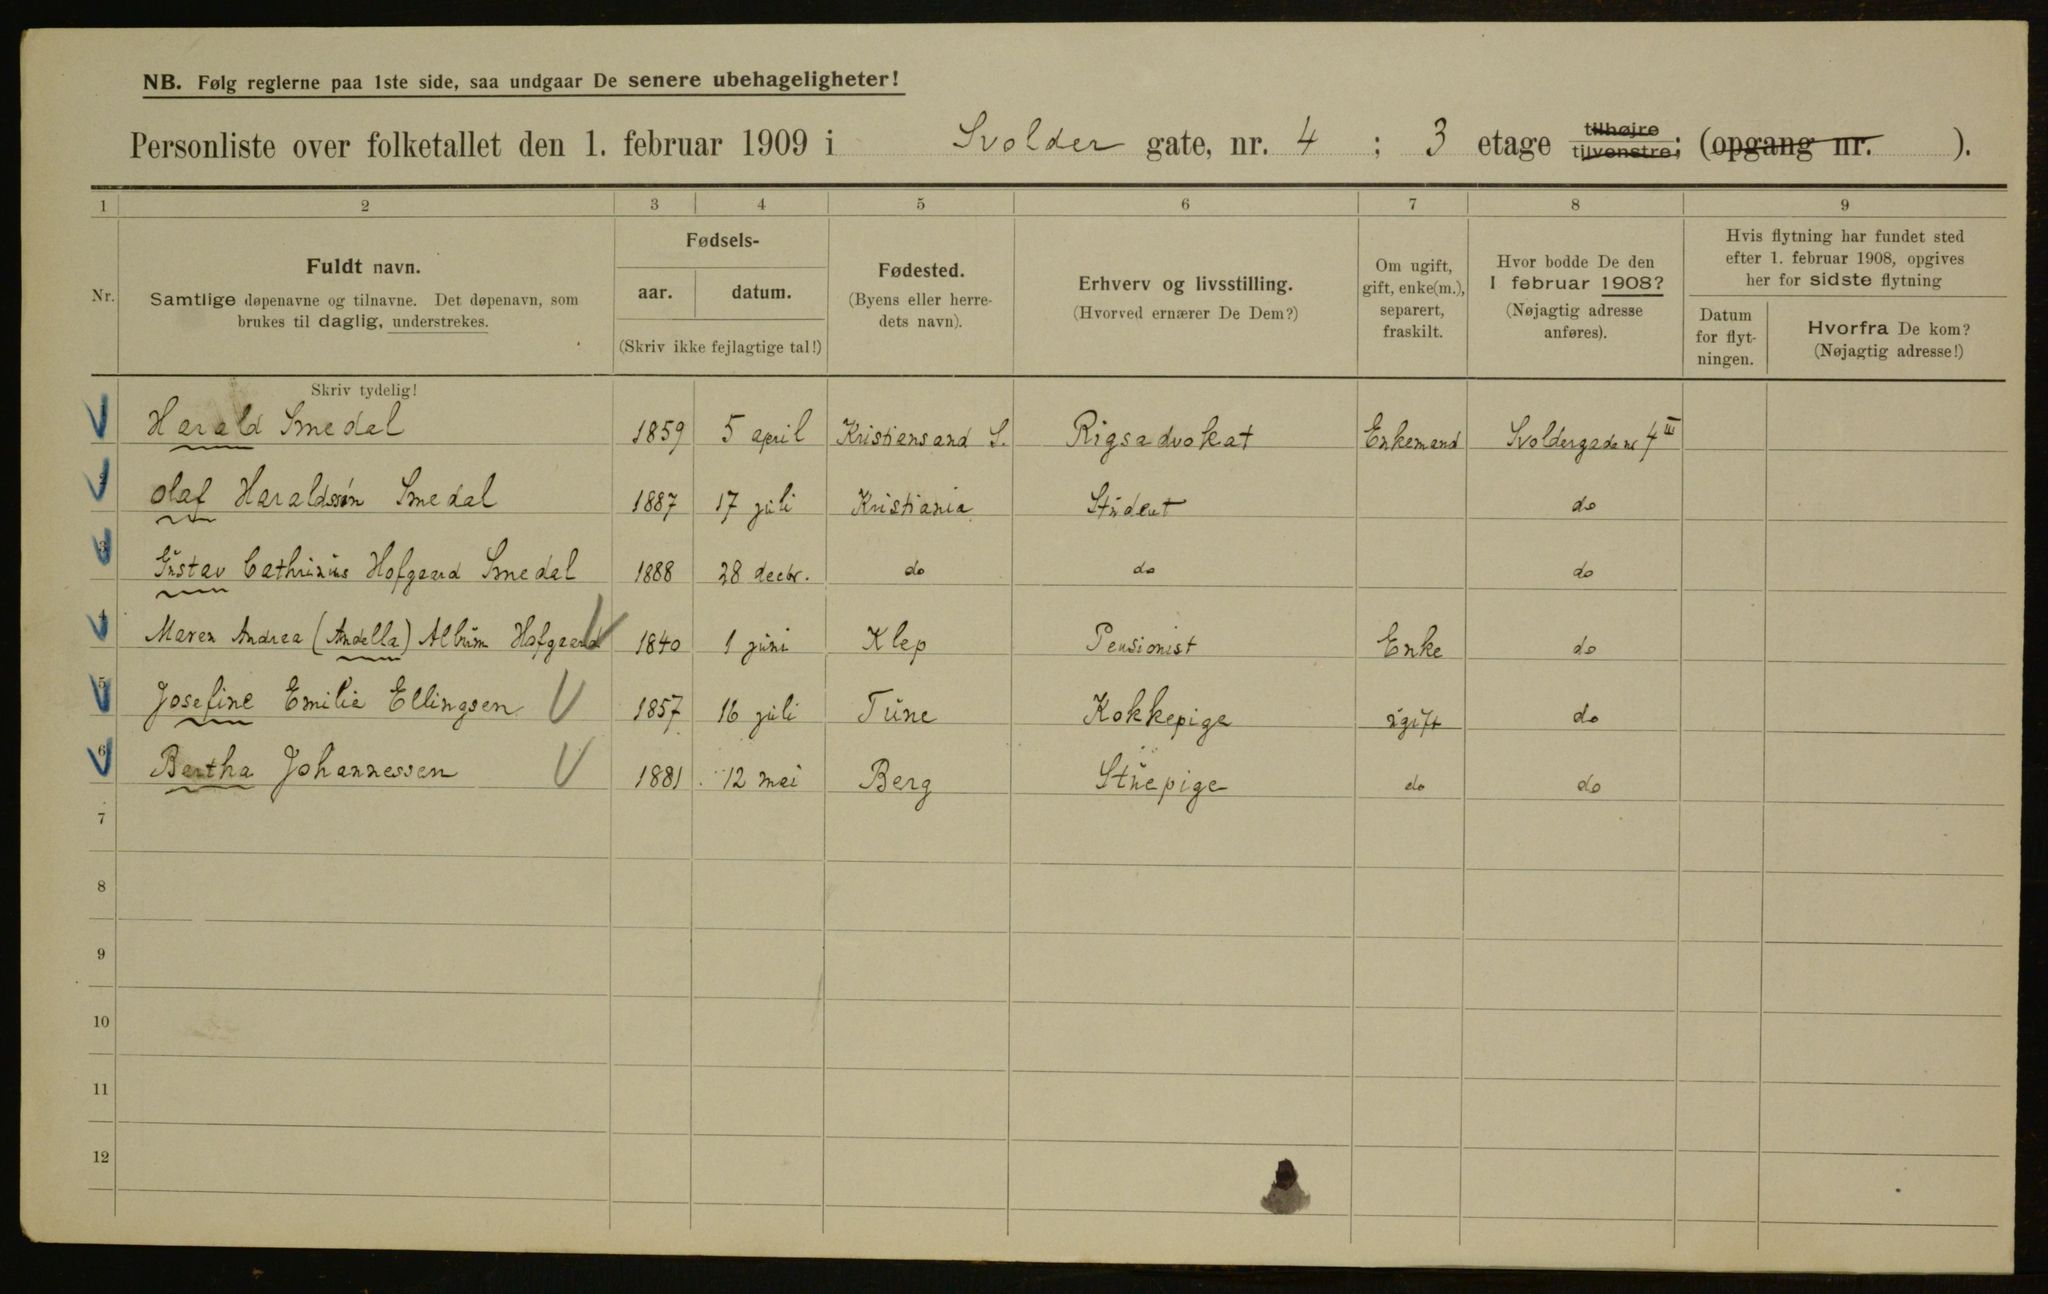 NB. Følg reglerne paa 1ste side, saa undgaar De senere ubehageligheter!
Personliste over folketallet den 1. februar 1909 i Svolder gate, nr. 4 ; 3 etage tilhøjre tilvenstre; (opgang nr. ).
1 2 3 4 5 6 7 8 9
Nr.
Fuldt navn.
Samtlige døpenavne og tilnavne. Det døpenavn, som
brukes til daglig, understrekes.
Fødsels-
aar. datum.
(Skriv ikke fejlagtige tal!)
Fødested.
(Byens eller herre-
dets navn).
Erhverv og livsstilling.
(Hvorved ernærer De Dem?)
Om ugift,
gift, enke(m.),
separert,
fraskilt.
Hvor bodde De den
1 februar 1908?
(Nøjagtig adresse
anføres).
Hvis flytning har fundet sted
efter 1. februar 1908, opgives
her for sidste flytning
Datum
for flyt-
ningen.
Hvorfra De kom?
(Nøjagtig adresse!)
Skriv tydelig!
1 Harald Smedal 1859 5 april Kristiansand S. Rigsadvokat Enkemand Svoldergade nr 4 III
2 Olaf Haraldssøn Smedal 1887 17 juli Kristiania Student do
3 Gustav Cathrinius Hofgaard Smedal 1888 28 decbr. do do do
4 Maren Andrea (Andella) Album Hofgaard 1840 1 juni Klep Pensionist Enke do
5 Josefine Emilie Ellingsen 1857 16 juli Tune Kokkepige ugift do
6 Bertha Johannessen 1881 12 mai Berg Stuepige do do
7
8
9
10
11
12